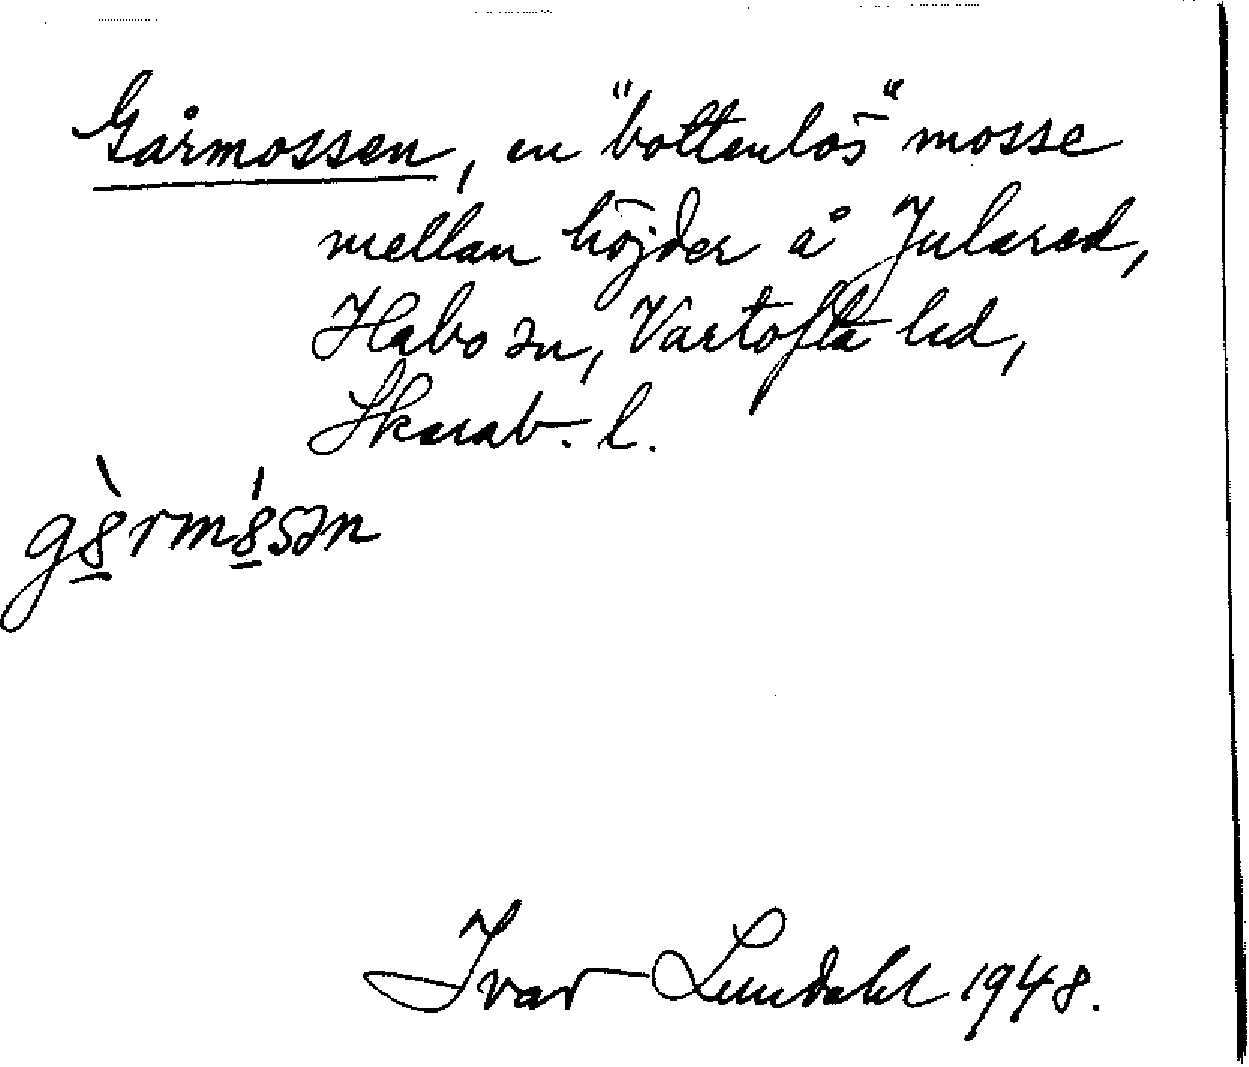 Gårmossen, en "bottenlös" mosse
mellan höjder å Julared,
Habo sn, Vartofta hd,
Skarab. l.
gårmåsən
Ivar Lundahl 1948.